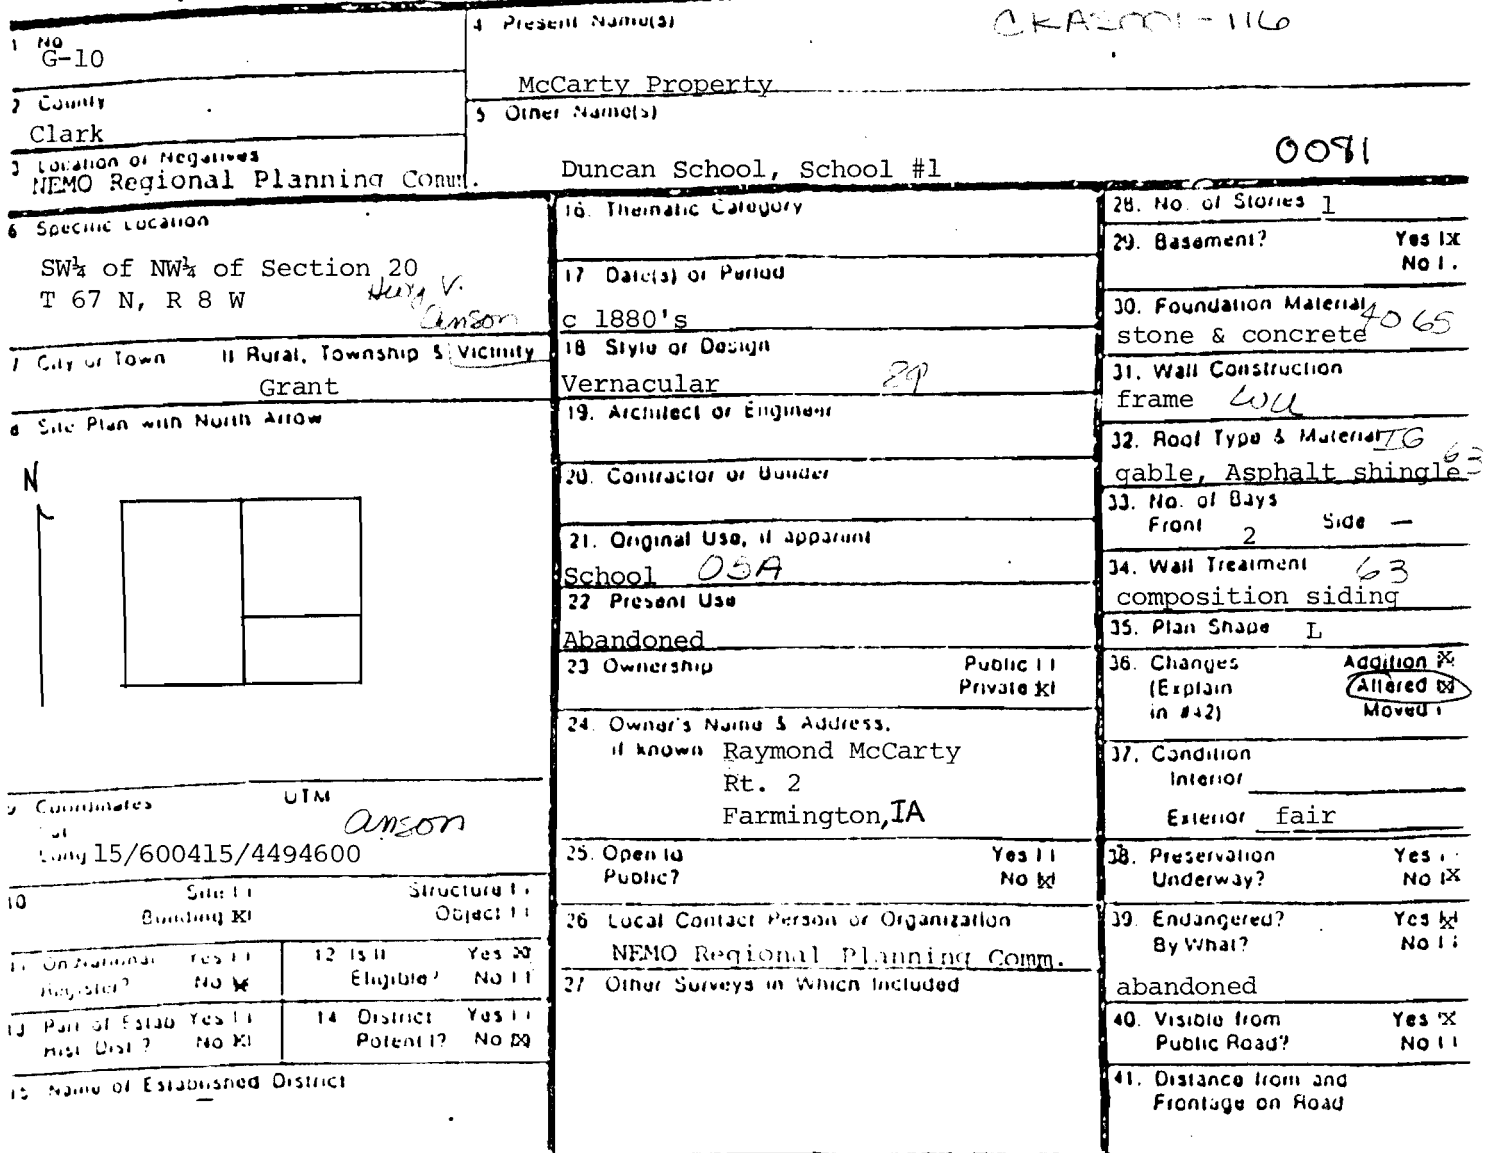 CKAS001-116
1 No
G-10
4 Present Name(s)
McCarty Property
2 County
Clark
5 Other Name(s)
Duncan School, School #1
0081
3 Location of Negatives
NEMO Regional Planning Comm.
6 Specific Location
SW¼ of NW¼ of Section 20
T 67 N, R 8 W
V.
Anson
7 City or Town If Rural, Township & Vicinity
Grant
8 Site Plan with North Arrow
N
9 Coordinates UTM
Lat
Anson
Long 15/600415/4494600
10 Site Structure
Building X Object
11 On National Register? Yes No X
12 Is It Eligible? Yes X No
13 Part of Estab Hist. Dist.? Yes No X
14 District Potent'l? Yes No X
15 Name of Established District
16. Thematic Category
17 Date(s) or Period
c 1880's
18 Style or Design
Vernacular 89
19. Architect or Engineer
20. Contractor or Builder
21. Original Use, if apparent
School 05A
22 Present Use
Abandoned
23 Ownership Public
Private X
24. Owner's Name & Address,
if known Raymond McCarty
Rt. 2
Farmington, IA
25. Open to Yes
Public? No X
26 Local Contact Person or Organization
NEMO Regional Planning Comm.
27 Other Surveys in Which Included
28. No. of Stories 1
29. Basement? Yes X
No
30. Foundation Material 40 65
stone & concrete
31. Wall Construction
frame
32. Roof Type & Material IG
gable, Asphalt shingle 63
33. No. of Bays
Front 2 Side —
34. Wall Treatment 63
composition siding
35. Plan Shape L
36. Changes Addition X
(Explain Altered X
in #42) Moved
37. Condition
Interior
Exterior fair
38. Preservation Yes
Underway? No X
39. Endangered? Yes X
By What? No
abandoned
40. Visible from Yes X
Public Road? No
41. Distance from and
Frontage on Road